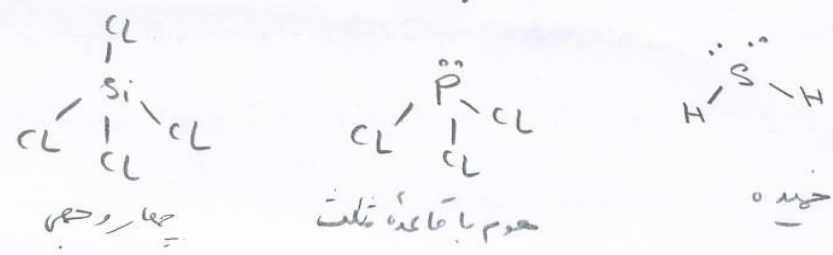 CL
Si
CL CL CL
چهار وجهی
P
CL CL CL
هرم با قاعدهٔ مثلث
S
H H
خمیده